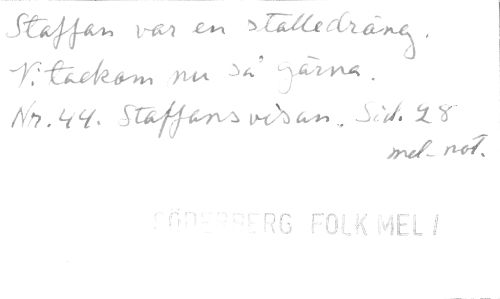 Staffan var en stalledräng.
Vi tackom nu så gärna.
Nr. 44. Staffansvisan. Sid. 28
mel-not.
SÖDERBERG FOLKMEL /